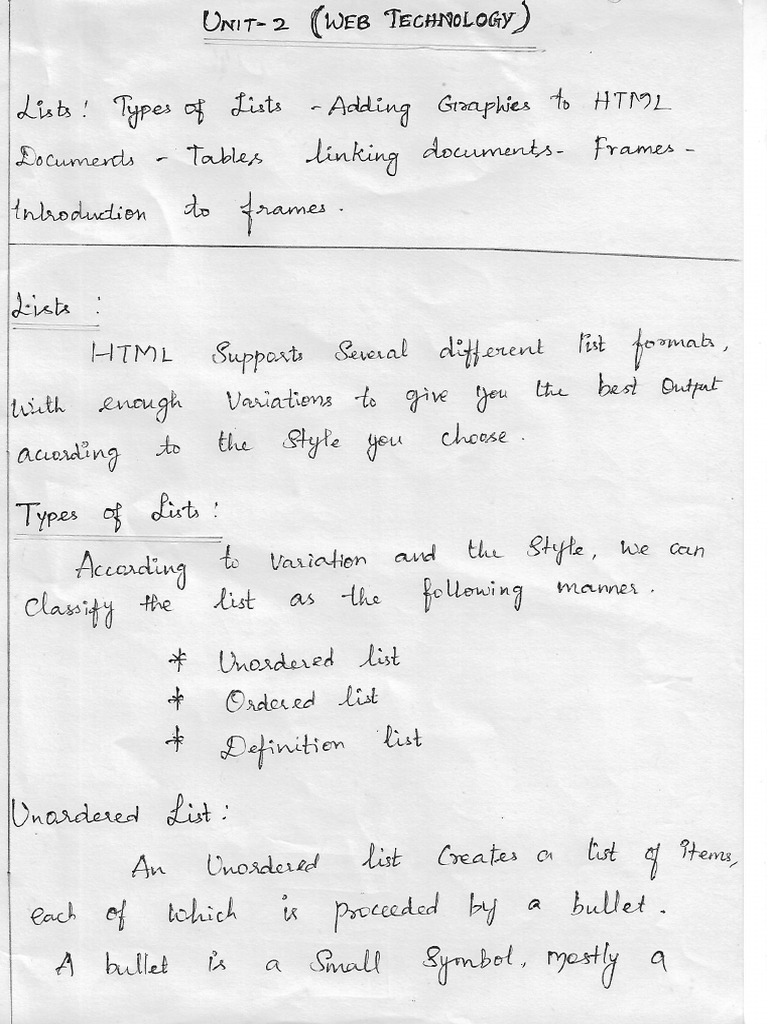 UNIT-2 (WEB TECHNOLOGY)
Lists: Types of Lists - Adding Graphies to HTML
Documents - Tables linking documents - Frames -
Introduction to frames.
Lists :
HTML Supports Several different list formats,
with enough Variations to give you the best Output
according to the Style you choose.
Types of Lists :
According to variation and the Style, we can
Classify the list as the following manner.
* Unordered list
* Ordered list
* Definition list
Unordered List :
An Unordered list Creates a list of items,
each of which is proceeded by a bullet.
A bullet is a Small Symbol, mostly a